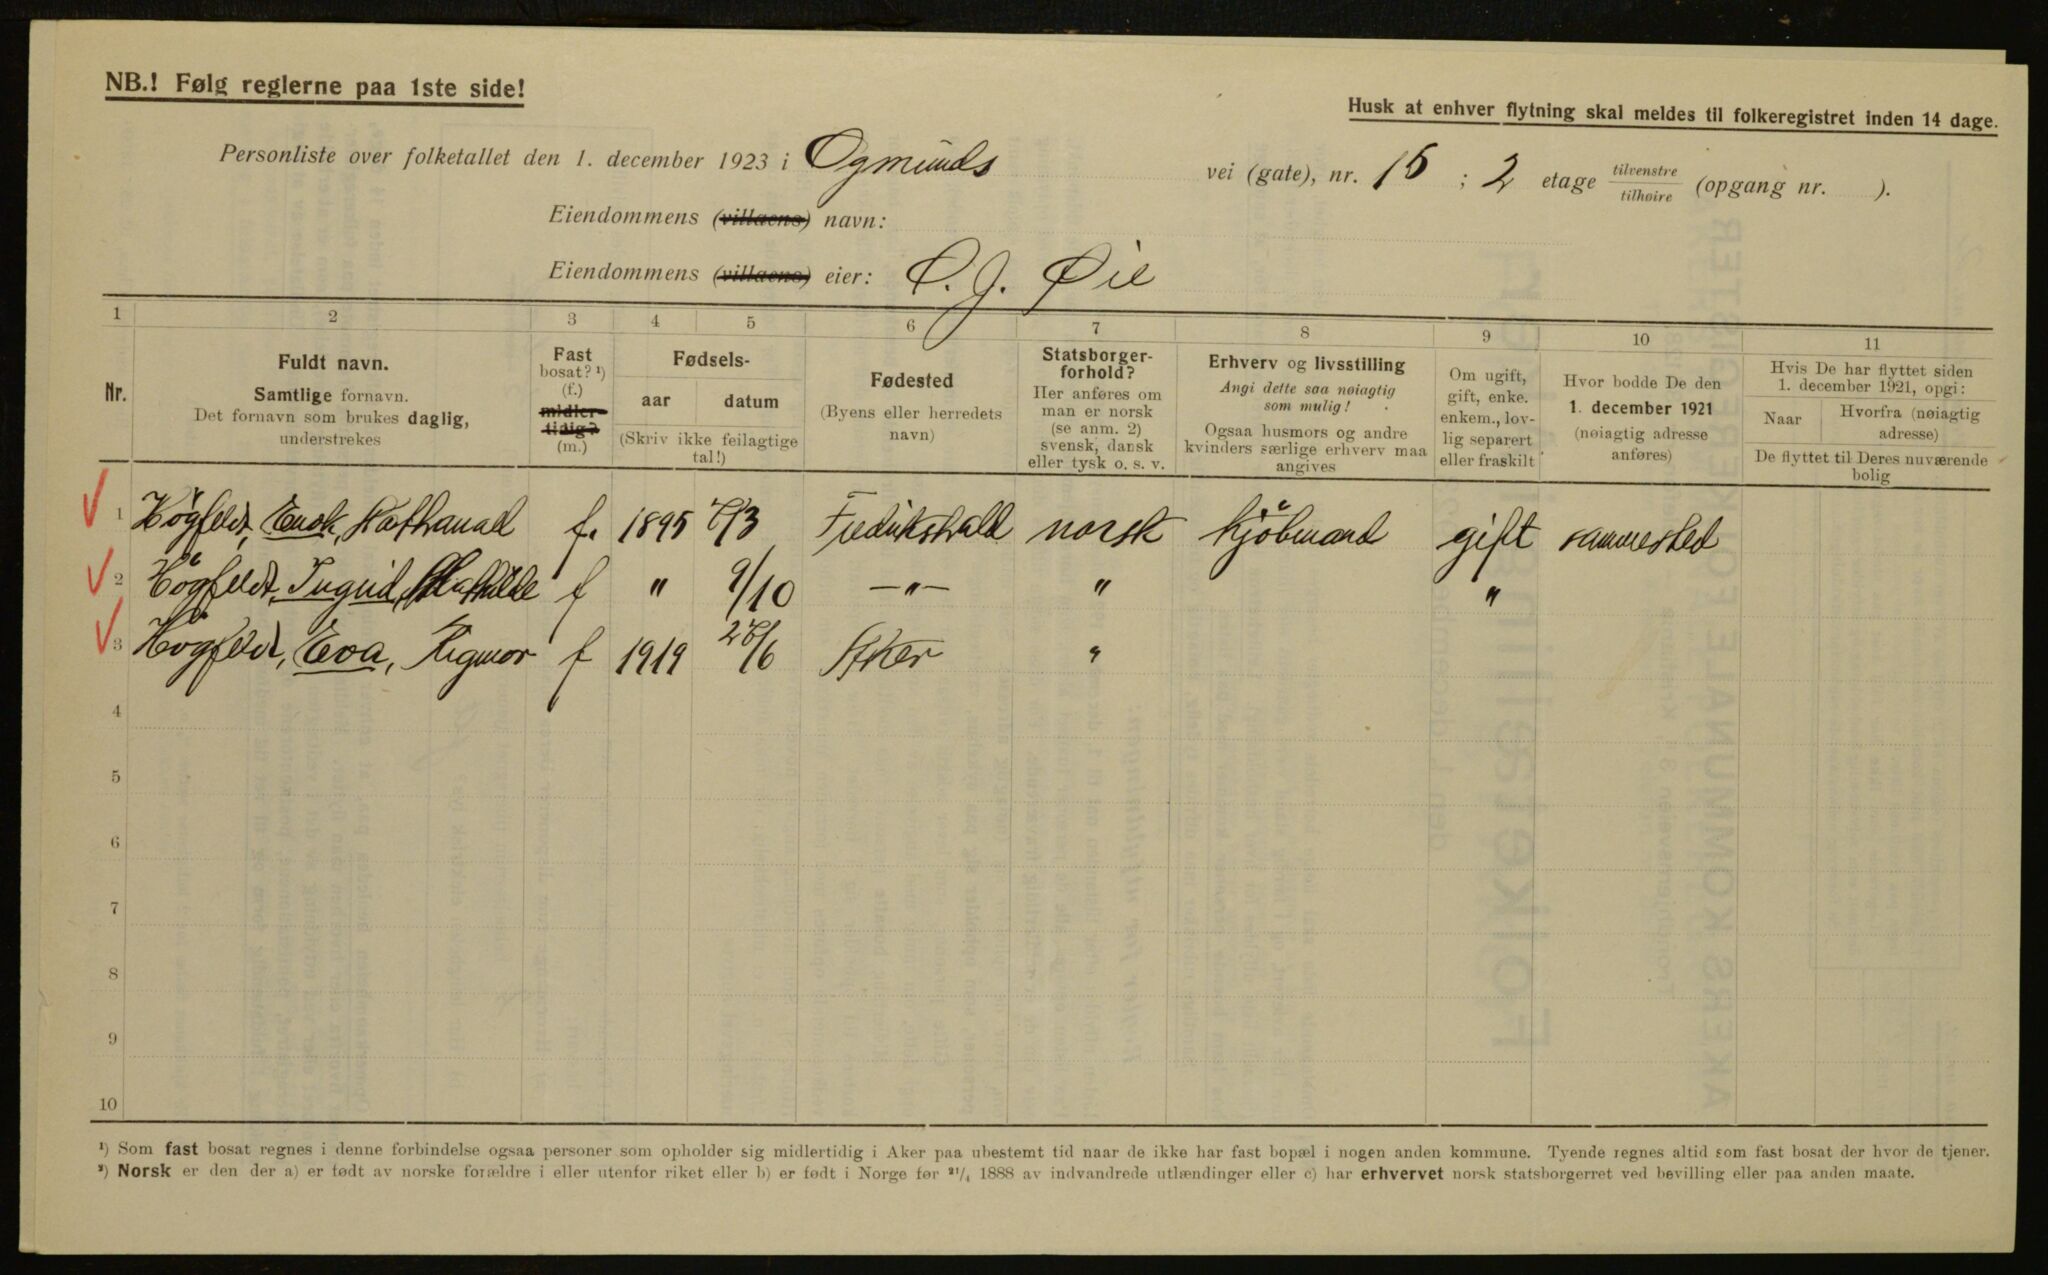 NB.! Følg reglerne paa 1ste side!
Husk at enhver flytning skal meldes til folkeregistret inden 14 dage.
Personliste over folketallet den 1. december 1923 i Ogmunds vei (gate), nr. 15 ; 2 etage tilvenstre tilhøire (opgang nr. ).
Eiendommens (villaens) navn:
Eiendommens (villaens) eier: O. J. Øie
1 2 3 4 5 6 7 8 9 10 11
Nr.
Fuldt navn.
Samtlige fornavn.
Det fornavn som brukes daglig,
understrekes
Fast
bosat? ¹)
(f.)
midler-
tidig?
(m.)
Fødsels-
aar datum
(Skriv ikke feilagtige
tal!)
Fødested
(Byens eller herredets
navn)
Statsborger-
forhold?
Her anføres om
man er norsk
(se anm. 2)
svensk, dansk
eller tysk o. s. v.
Erhverv og livsstilling
Angi dette saa nøiagtig
som mulig!
Ogsaa husmors og andre
kvinders særlige erhverv maa
angives
Om ugift,
gift, enke.
enkem., lov-
lig separert
eller fraskilt
Hvor bodde De den
1. december 1921
(nøiagtig adresse
anføres)
Hvis De har flyttet siden
1. december 1921, opgi:
Naar Hvorfra (nøiagtig
adresse)
De flyttet til Deres nuværende
bolig
1 Högfeldt, Enok, Nathanael f. 1895 /3 Fredrikshald norsk kjöbmand gift sammested
2 Högfeldt, Ingrid, Mathilde f " 9/10 —"— " "
3 Högfeldt, Eva, Rigmor f 1919 /6 Aker "
4
5
6
7
8
9
10
¹) Som fast bosat regnes i denne forbindelse ogsaa personer som opholder sig midlertidig i Aker paa ubestemt tid naar de ikke har fast bopæl i nogen anden kommune. Tyende regnes altid som fast bosat der hvor de tjener.
²) Norsk er den der a) er født av norske forældre i eller utenfor riket eller b) er født i Norge før ²¹/₄ 1888 av indvandrede utlændinger eller c) har erhvervet norsk statsborgerret ved bevilling eller paa anden maate.